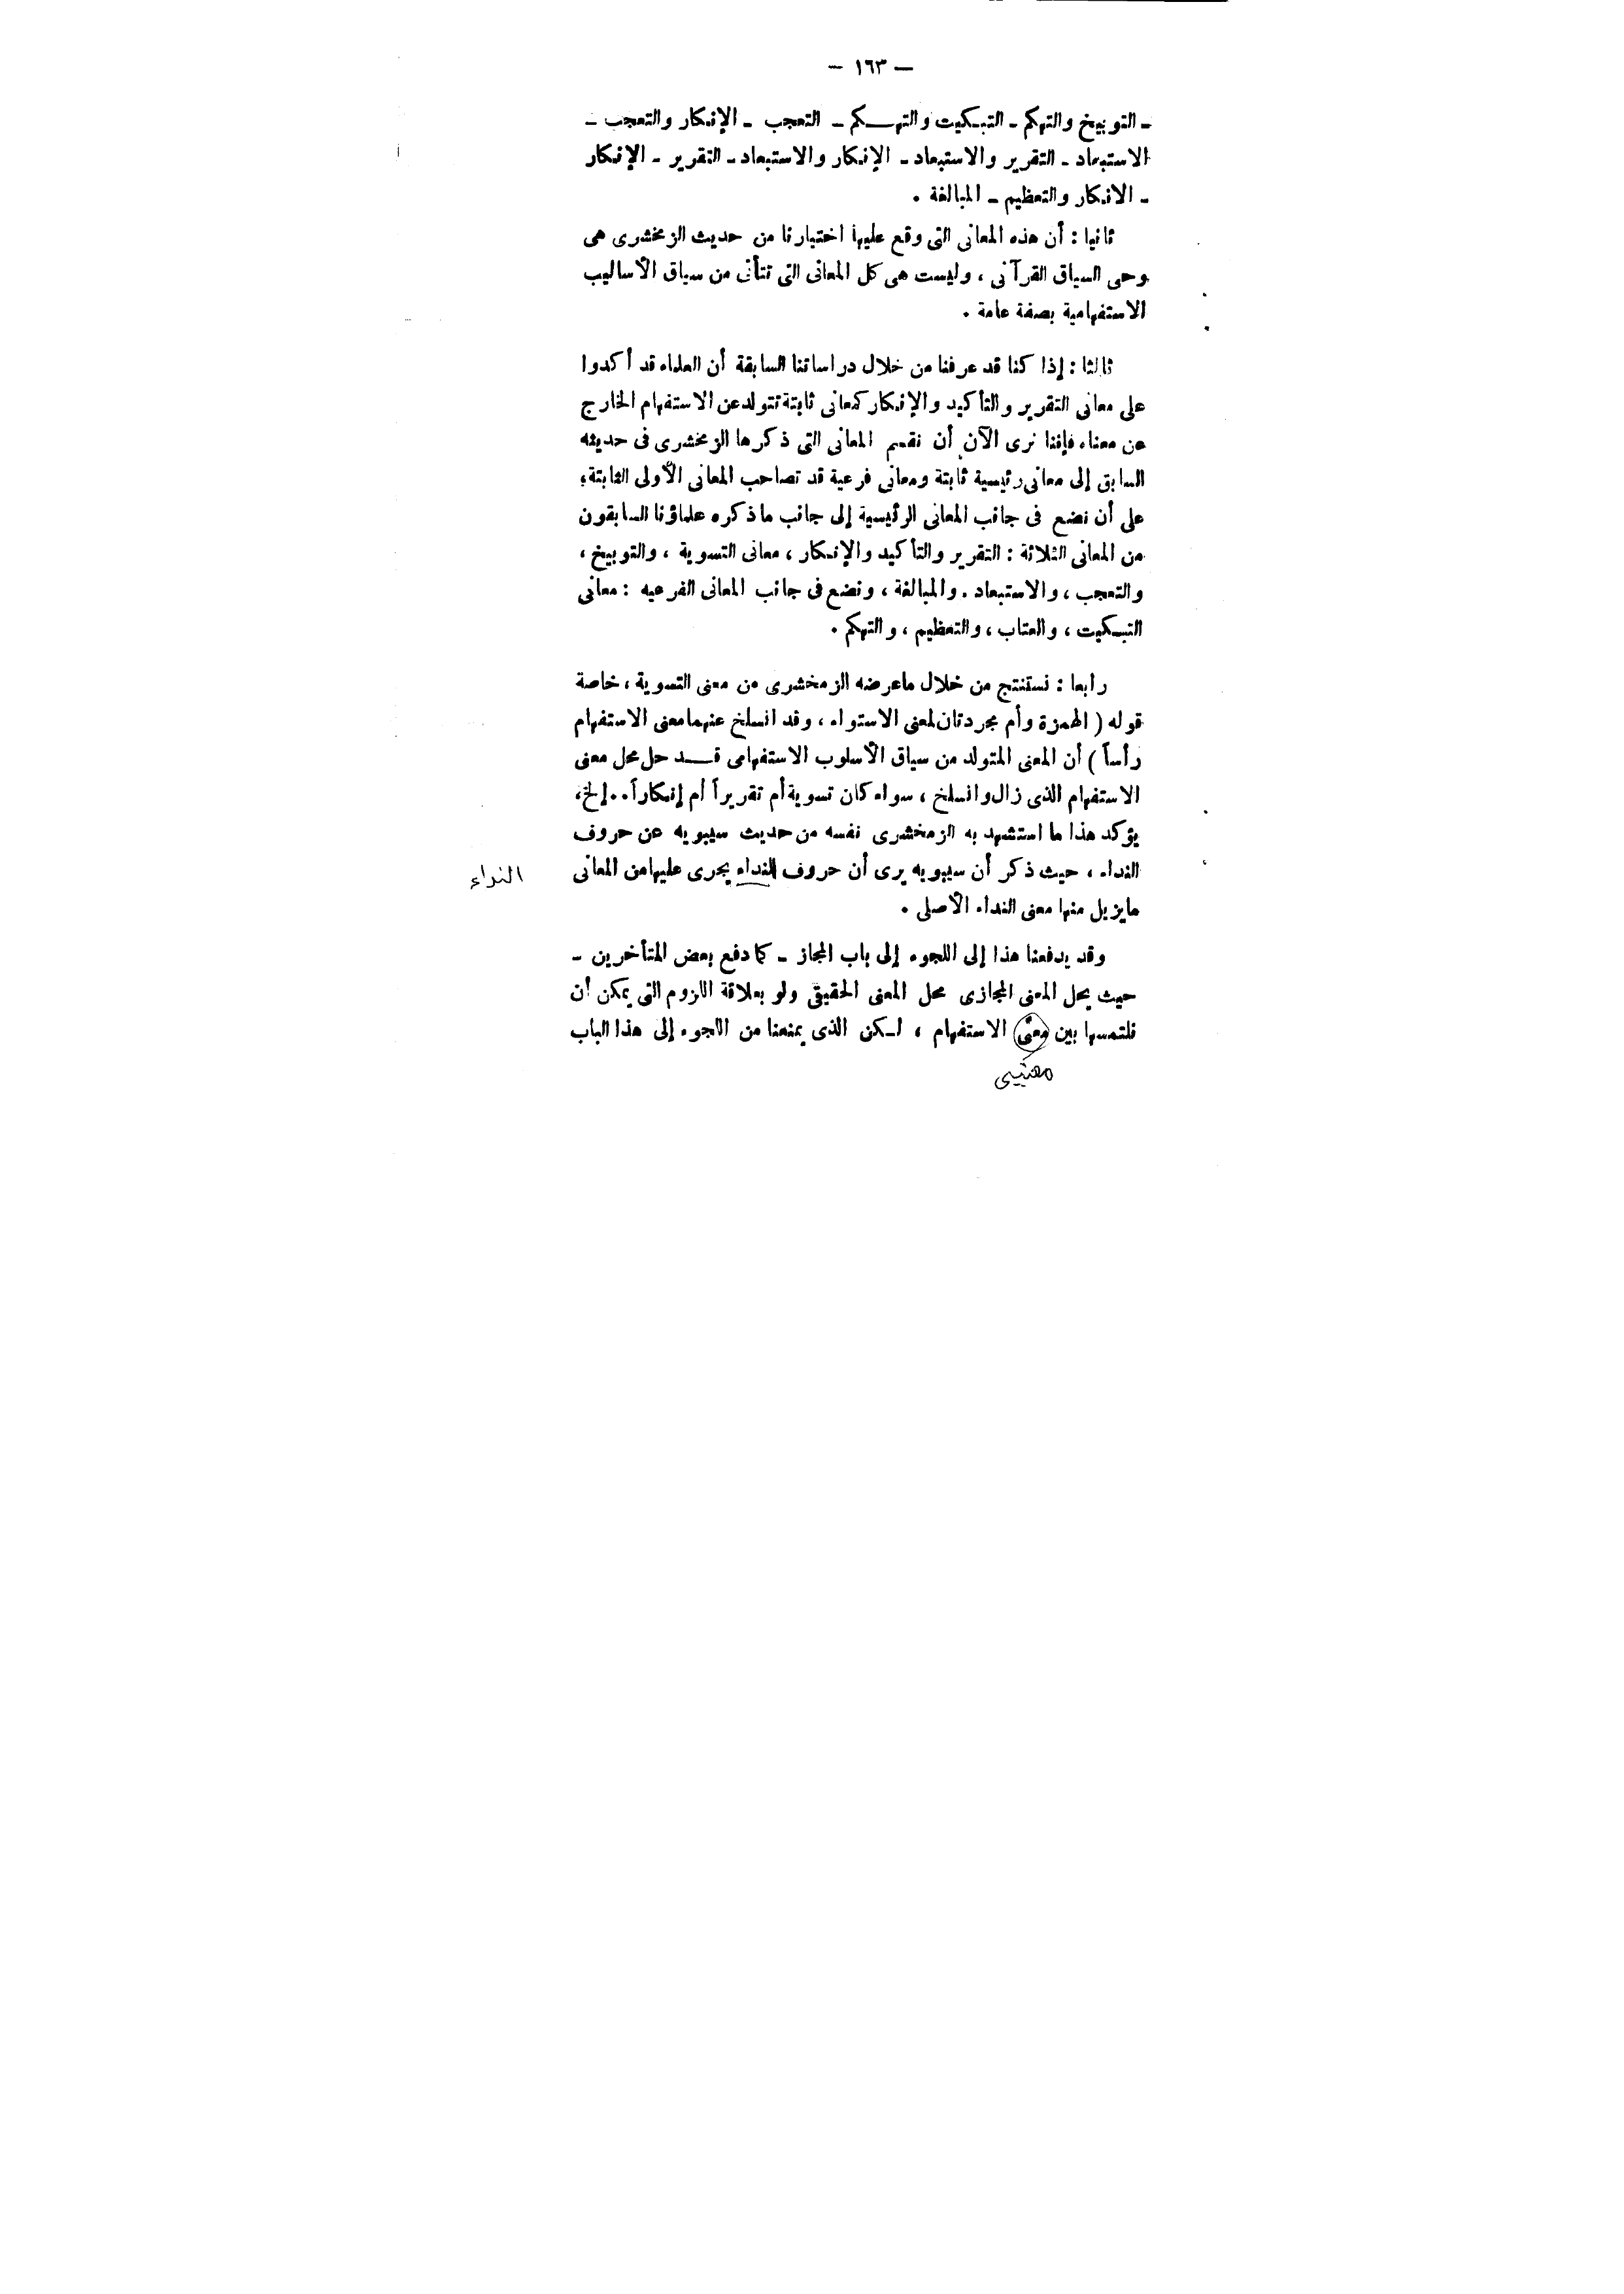 — ١٦٣ —
ـ التوبيخ والتهكم ـ التبكيت والتهكم ـ التعجب ـ الإنكار والتعجب ـ
الاستبعاد ـ التقرير والاستبعاد ـ الإنكار والاستبعاد ـ التقرير ـ الإنكار
ـ الانكار والتعظيم ـ المبالغة .
ثانيا : أن هذه المعانى التى وقع عليها اختيارنا من حديث الزمخشرى هى
وحى السياق القرآنى ، وليست هى كل المعانى التى تتأتى من سياق الأساليب
الاستفهامية بصفة عامة .
ثالثا : إذا كنا قد عرفنا من خلال دراساتنا السابقة أن العلماء قد أكدوا
على معانى التقرير والتأكيد والإنكار كمعانى ثابتة تتولد عن الاستفهام الخارج
عن معناه فإننا نرى الآن أن نقسم المعانى التى ذكرها الزمخشرى فى حديثه
السابق إلى معانى رئيسية ثابتة ومعانى فرعية قد تصاحب المعانى الأولى الثابتة ،
على أن نضع فى جانب المعانى الرئيسية إلى جانب ما ذكره علماؤنا السابقون
من المعانى الثلاثة : التقرير والتأكيد والإنكار ، معانى التسوية ، والتوبيخ ،
والتعجب ، والاستبعاد . والمبالغة ، ونضع فى جانب المعانى الفرعيه : معانى
التبكيت ، والعتاب ، والتعظيم ، والتهكم .
رابعا : نستنتج من خلال ماعرضه الزمخشرى من معنى التسوية ، خاصة
قوله ( الهمزة وأم مجردتان لمعنى الاستواء ، وقد انسلخ عنهما معنى الاستفهام
رأساً ) أن المعنى المتولد من سياق الأسلوب الاستفهامى قد حل محل معنى
الاستفهام الذى زال وانسلخ ، سواء كان تسوية أم تقريراً أم إنكاراً . . إلخ ،
يؤكد هذا ما استشهد به الزمخشرى نفسه من حديث سيبويه عن حروف
النداء ، حيث ذكر أن سيبويه يرى أن حروف النداء يجرى عليها من المعانى
النداء
مايزيل منها معنى النداء الأصلى .
وقد يدفعنا هذا إلى اللجوء إلى باب المجاز ـ كما دفع بعض المتأخرين ـ
حيث يحل المعنى المجازى محل المعنى الحقيقى ولو بعلاقة اللزوم التى يمكن أن
نلتمسها بين معنى الاستفهام ، لكن الذى يمنعنا من اللجوء إلى هذا الباب
معنيى